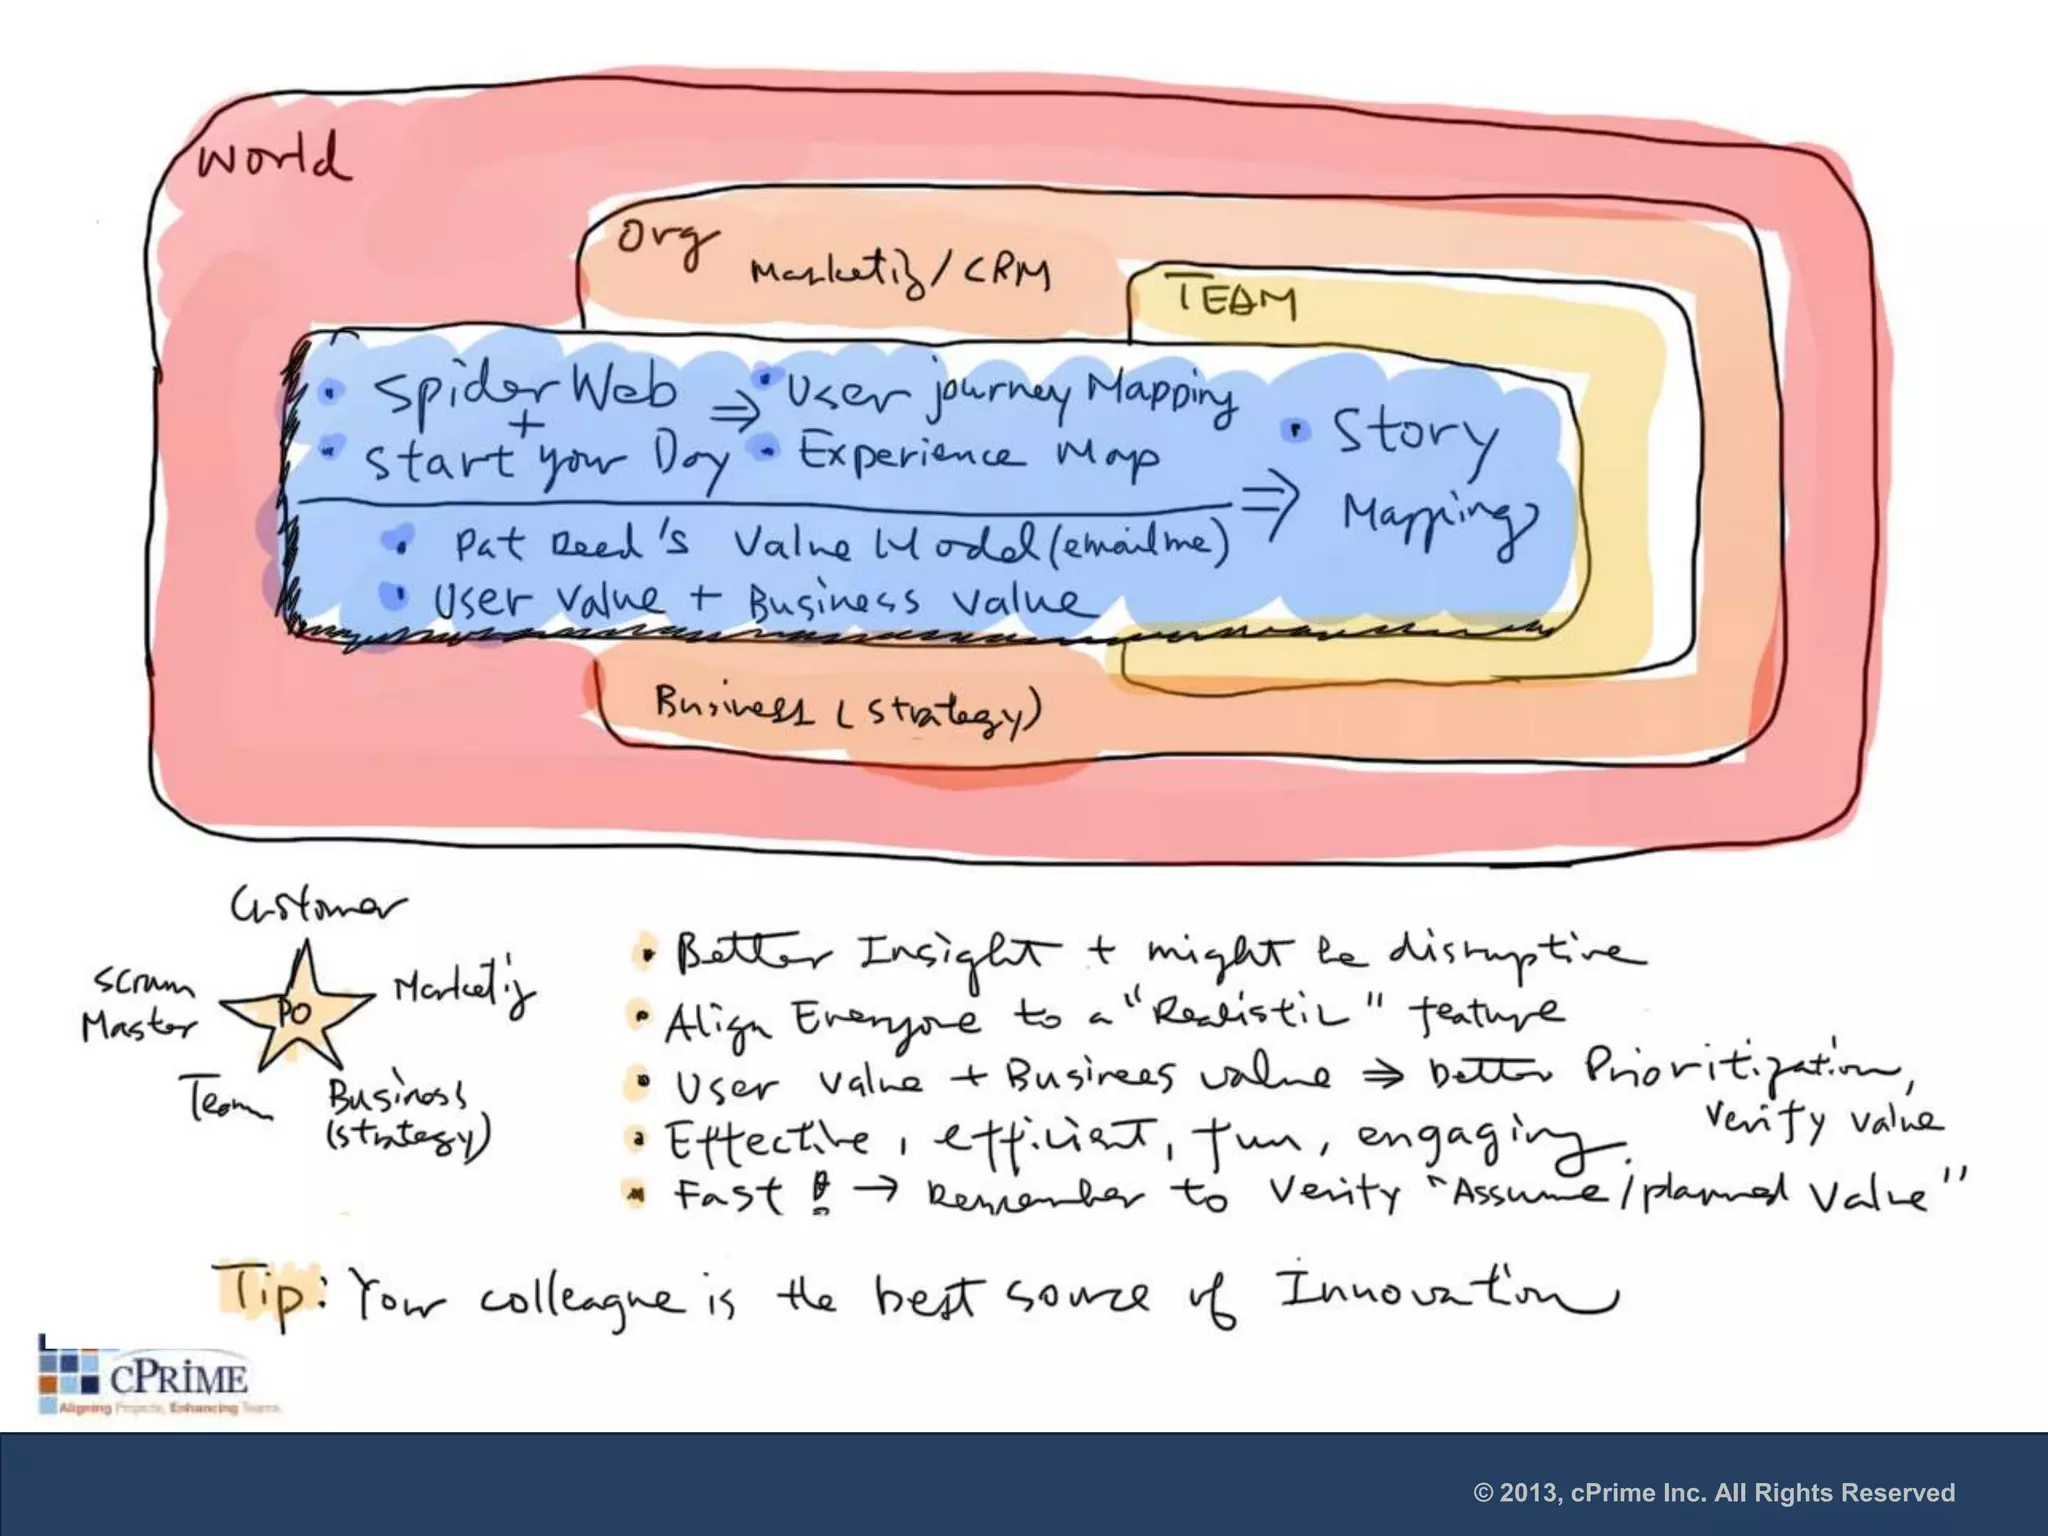 World
Org
Marketing/CRM
TEAM
• Spider Web
+
• Start your Day
⇒
• User journey Mapping
• Experience Map
• Pat Reed's Value Model (email me)
• User value + Business value
⇒
• Story
Mapping
Business (strategy)
Customer
Scrum
Master
PO
Marketing
Team
Business
(strategy)
• Better Insight + might be disruptive
• Align Everyone to a "Realistic" feature
• User value + Business value ⇒ better Prioritization,
verify value
• Effective, efficient, fun, engaging.
• Fast! → Remember to Verify "Assume/planned Value"
Tip: Your colleague is the best source of Innovation
cPRIME
Aligning Projects, Enhancing Teams
© 2013, cPrime Inc. All Rights Reserved